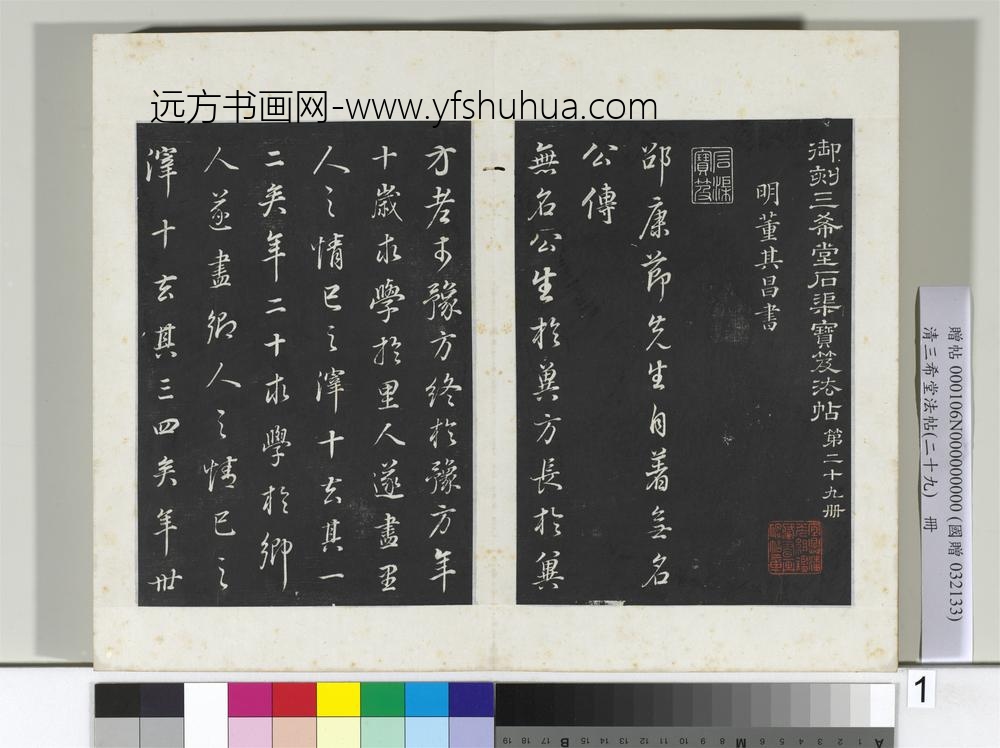 远方书画网-www.yfshuhua.com
御刻三希堂石渠寶笈法帖第二十九册
明董其昌書
石渠寶笈
邵康節先生自著無名
公傳
無名公生於冀方長於冀
方老於豫方終於豫方年
十歲求學於里人遂盡里
人之情已之滓十去其一
二矣年二十求學於鄉
人遂盡鄉人之情已之
滓十去其三四矣年卅
贈帖 000106N000000000 (國贈 032133)
清三希堂法帖(二十九) 册
1
19 18 17 16 B 15 14 13 12 11 10 9 8 M 7 6 5 4 3 2 1 A